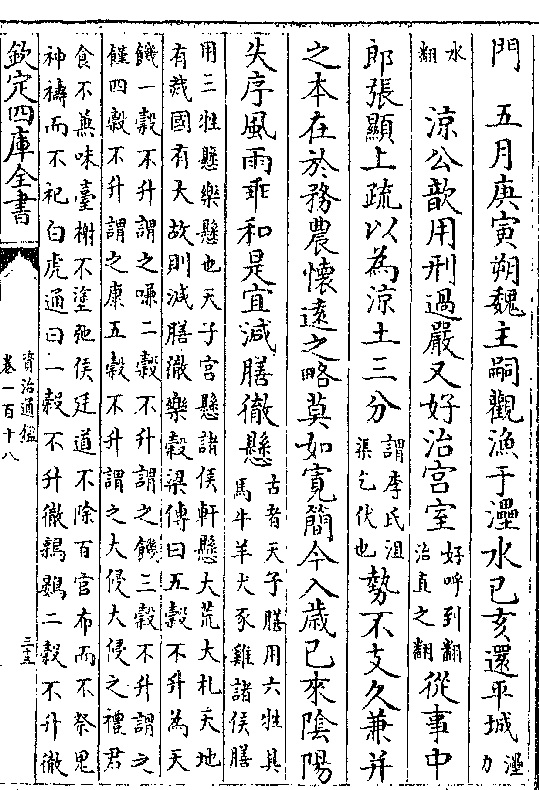 門　五月庚寅朔魏主嗣觀漁于㶟水己亥還平城㶟力
水翻　涼公歆用刑過嚴又好治宮室好呼到翻治直之翻從事中
郎張顯上疏以為涼土三分謂李氏沮渠乞伏也勢不支久兼并
之本在於務農懷遠之略莫如寛簡今入歳已來陰陽
失序風雨乖和是宜減膳徹懸古者天子膳用六牲具馬牛羊犬豕雞諸侯膳
用三牲懸樂懸也天子宮懸諸侯軒懸大荒大札天地
有烖國有大故則減膳徹樂穀梁傳曰五穀不升為天
饑一穀不升謂之嗛二穀不升謂之饑三穀不升謂之
饉四穀不升謂之康五穀不升謂之大侵大侵之禮君
食不兼味臺榭不塗弛侯廷道不除百官布而不祭鬼
神禱而不祀白虎通曰一穀不升徹鶉鷃二穀不升徹
欽定四庫全書
資治通鑑
卷一百十八
三十五